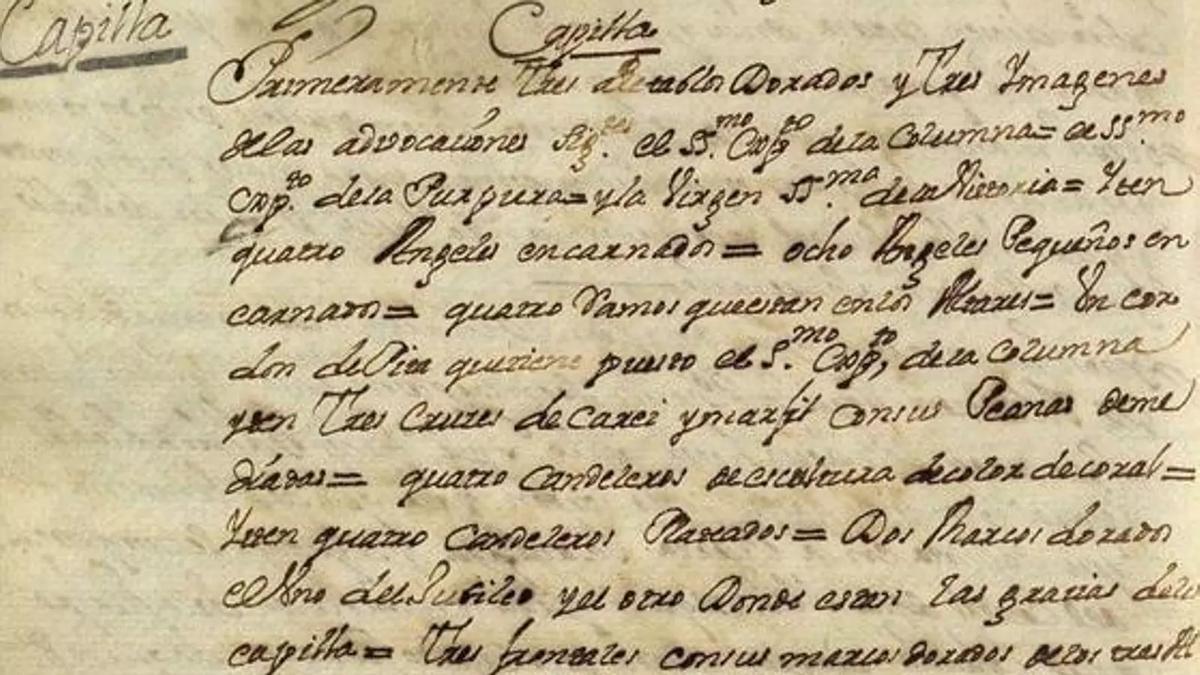 Capilla
Capilla
Primeramente Tres Retablos Dorados y Tres Ymagenes
de las advocaciones Sig.tes el SS.mo Cxpto de la Columna = el SS.mo
Cxp.to de la Purpura = y la Virgen SS.ma de la Victoria = Yten
quatro Angeles encarnados = ocho Angeles Pequeños en
carnados = quatro Ramos que estan en los Altares = Un cor
don de Pita que tiene puesto el S.mo Cxpto, de la Columna
yten Tres Cruzes de Carei y marfil con sus Peanas de me
díadas = quatro Candeleros de escultura de color de coral =
Yten quatro Candeleros Plateados = Dos Marcos dorados
el Uno del Jubileo y el otro Donde estan las gracias de la
capilla = Tres frontales con sus marcos dorados de los tres Al